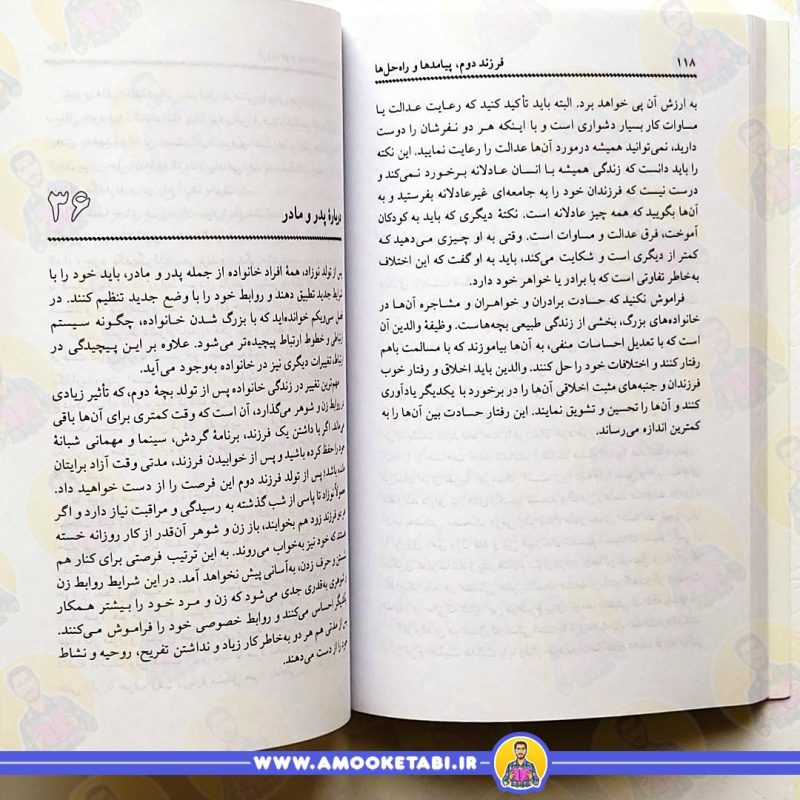 ۱۱۸
فرزند دوم، پیامدها و راه‌حل‌ها
به ارزش آن پی خواهد برد. البته باید تأکید کنید که رعایت عدالت یا
مساوات کار بسیار دشواری است و با اینکه هر دو نفرشان را دوست
دارید، نمی‌توانید همیشه درمورد آن‌ها عدالت را رعایت نمایید. این نکته
را باید دانست که زندگی همیشه با انسان عادلانه برخورد نمی‌کند و
درست نیست که فرزندان خود را به جامعه‌ای غیرعادلانه بفرستید و به
آن‌ها بگویید که همه چیز عادلانه است. نکتهٔ دیگری که باید به کودکان
آموخت، فرق عدالت و مساوات است. وقتی به او چیزی می‌دهید که
کمتر از دیگری است و شکایت می‌کند، باید به او گفت که این اختلاف
به‌خاطر تفاوتی است که با برادر یا خواهر خود دارد.
فراموش نکنید که حسادت برادران و خواهران و مشاجره آن‌ها در
خانواده‌های بزرگ، بخشی از زندگی طبیعی بچه‌هاست. وظیفهٔ والدین آن
است که با تعدیل احساسات منفی، به آن‌ها بیاموزند که با مسالمت باهم
رفتار کنند و اختلافات خود را حل کنند. والدین باید اخلاق و رفتار خوب
فرزندان و جنبه‌های مثبت اخلاقی آن‌ها را در برخورد با یکدیگر یادآوری
کنند و آن‌ها را تحسین و تشویق نمایند. این رفتار حسادت بین آن‌ها را به
کمترین اندازه می‌رساند.
۳۶
دربارهٔ پدر و مادر
پس از تولد نوزاد، همهٔ افراد خانواده از جمله پدر و مادر، باید خود را با
شرایط جدید تطبیق دهند و روابط خود را با وضع جدید تنظیم کنند. در
فصل سی‌ویکم خوانده‌اید که با بزرگ شدن خانواده، چگونه سیستم
ارتباطی و خطوط ارتباط پیچیده‌تر می‌شود. علاوه بر این پیچیدگی در
ارتباط، تغییرات دیگری نیز در خانواده به‌وجود می‌آید.
مهم‌ترین تغییر در زندگی خانواده پس از تولد بچهٔ دوم، که تأثیر زیادی
در روابط زن و شوهر می‌گذارد، آن است که وقت کمتری برای آن‌ها باقی
می‌ماند. اگر با داشتن یک فرزند، برنامهٔ گردش، سینما و مهمانی شبانهٔ
خود را حفظ کرده باشید و پس از خوابیدن فرزند، مدتی وقت آزاد برایتان
مانده باشد؛ پس از تولد فرزند دوم این فرصت را از دست خواهید داد.
معمولاً نوزاد تا پاسی از شب گذشته به رسیدگی و مراقبت نیاز دارد و اگر
هر دو فرزند زود هم بخوابند، باز زن و شوهر آن‌قدر از کار روزانه خسته
هستند که خود نیز به‌خواب می‌روند. به این ترتیب فرصتی برای کنار هم
نشستن و حرف زدن، به‌آسانی پیش نخواهد آمد. در این شرایط روابط زن
و شوهری به‌قدری جدی می‌شود که زن و مرد خود را بیشتر همکار
یکدیگر احساس می‌کنند و روابط خصوصی خود را فراموش می‌کنند.
پس از مدتی هم هر دو به‌خاطر کار زیاد و نداشتن تفریح، روحیه و نشاط
خود را از دست می‌دهند.
WWW.AMOOKETABI.IR